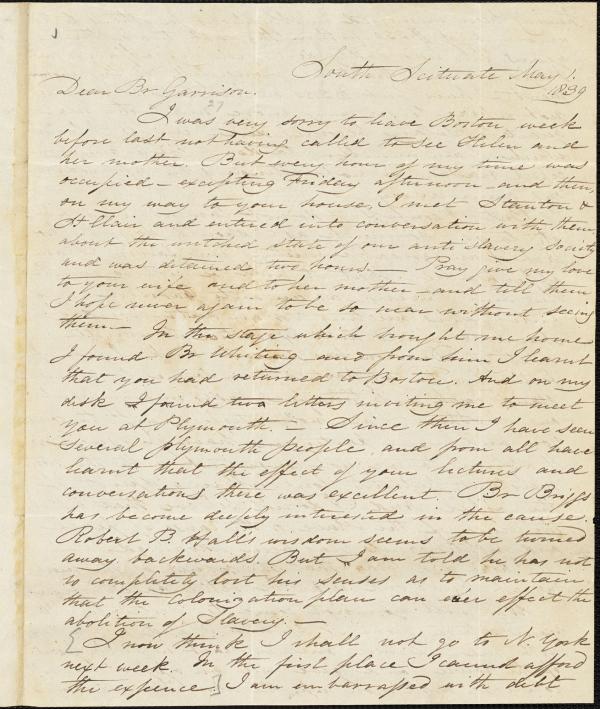 South Scituate May 1.
1839
Dear Br Garrison.
I was very sorry to leave Boston week
before last not having called to see Helen and
her mother. But every hour of my time was
occupied – excepting Friday afternoon – and then,
on my way to your house, I met Stanton &
St Clair and entered into conversation with them,
about the wretched state of our anti slavery society
and was detained two hours. — Pray give my love
to your wife and to her mother – and tell them
I hope never again to be so near without seeing
them — In the stage which brought me home
I found Br Whiting and from him I learnt
that you had returned to Boston. And on my
desk I found two letters inviting me to meet
you at Plymouth. — Since then I have seen
several plymouth people, and from all have
learnt that the effect of your lectures and
conversations there was excellent. Br Briggs
has become deeply interested in the cause.
Robert B. Halls wisdom seems to be turned
away backwards. But I am told he has not
so completely lost his senses as to maintain
that the Colonization plan can ever effect the
abolition of Slavery. —
[I now think I shall not go to N. York
next week. In the first place I cannot afford
the expence.] I am embarrassed with debt